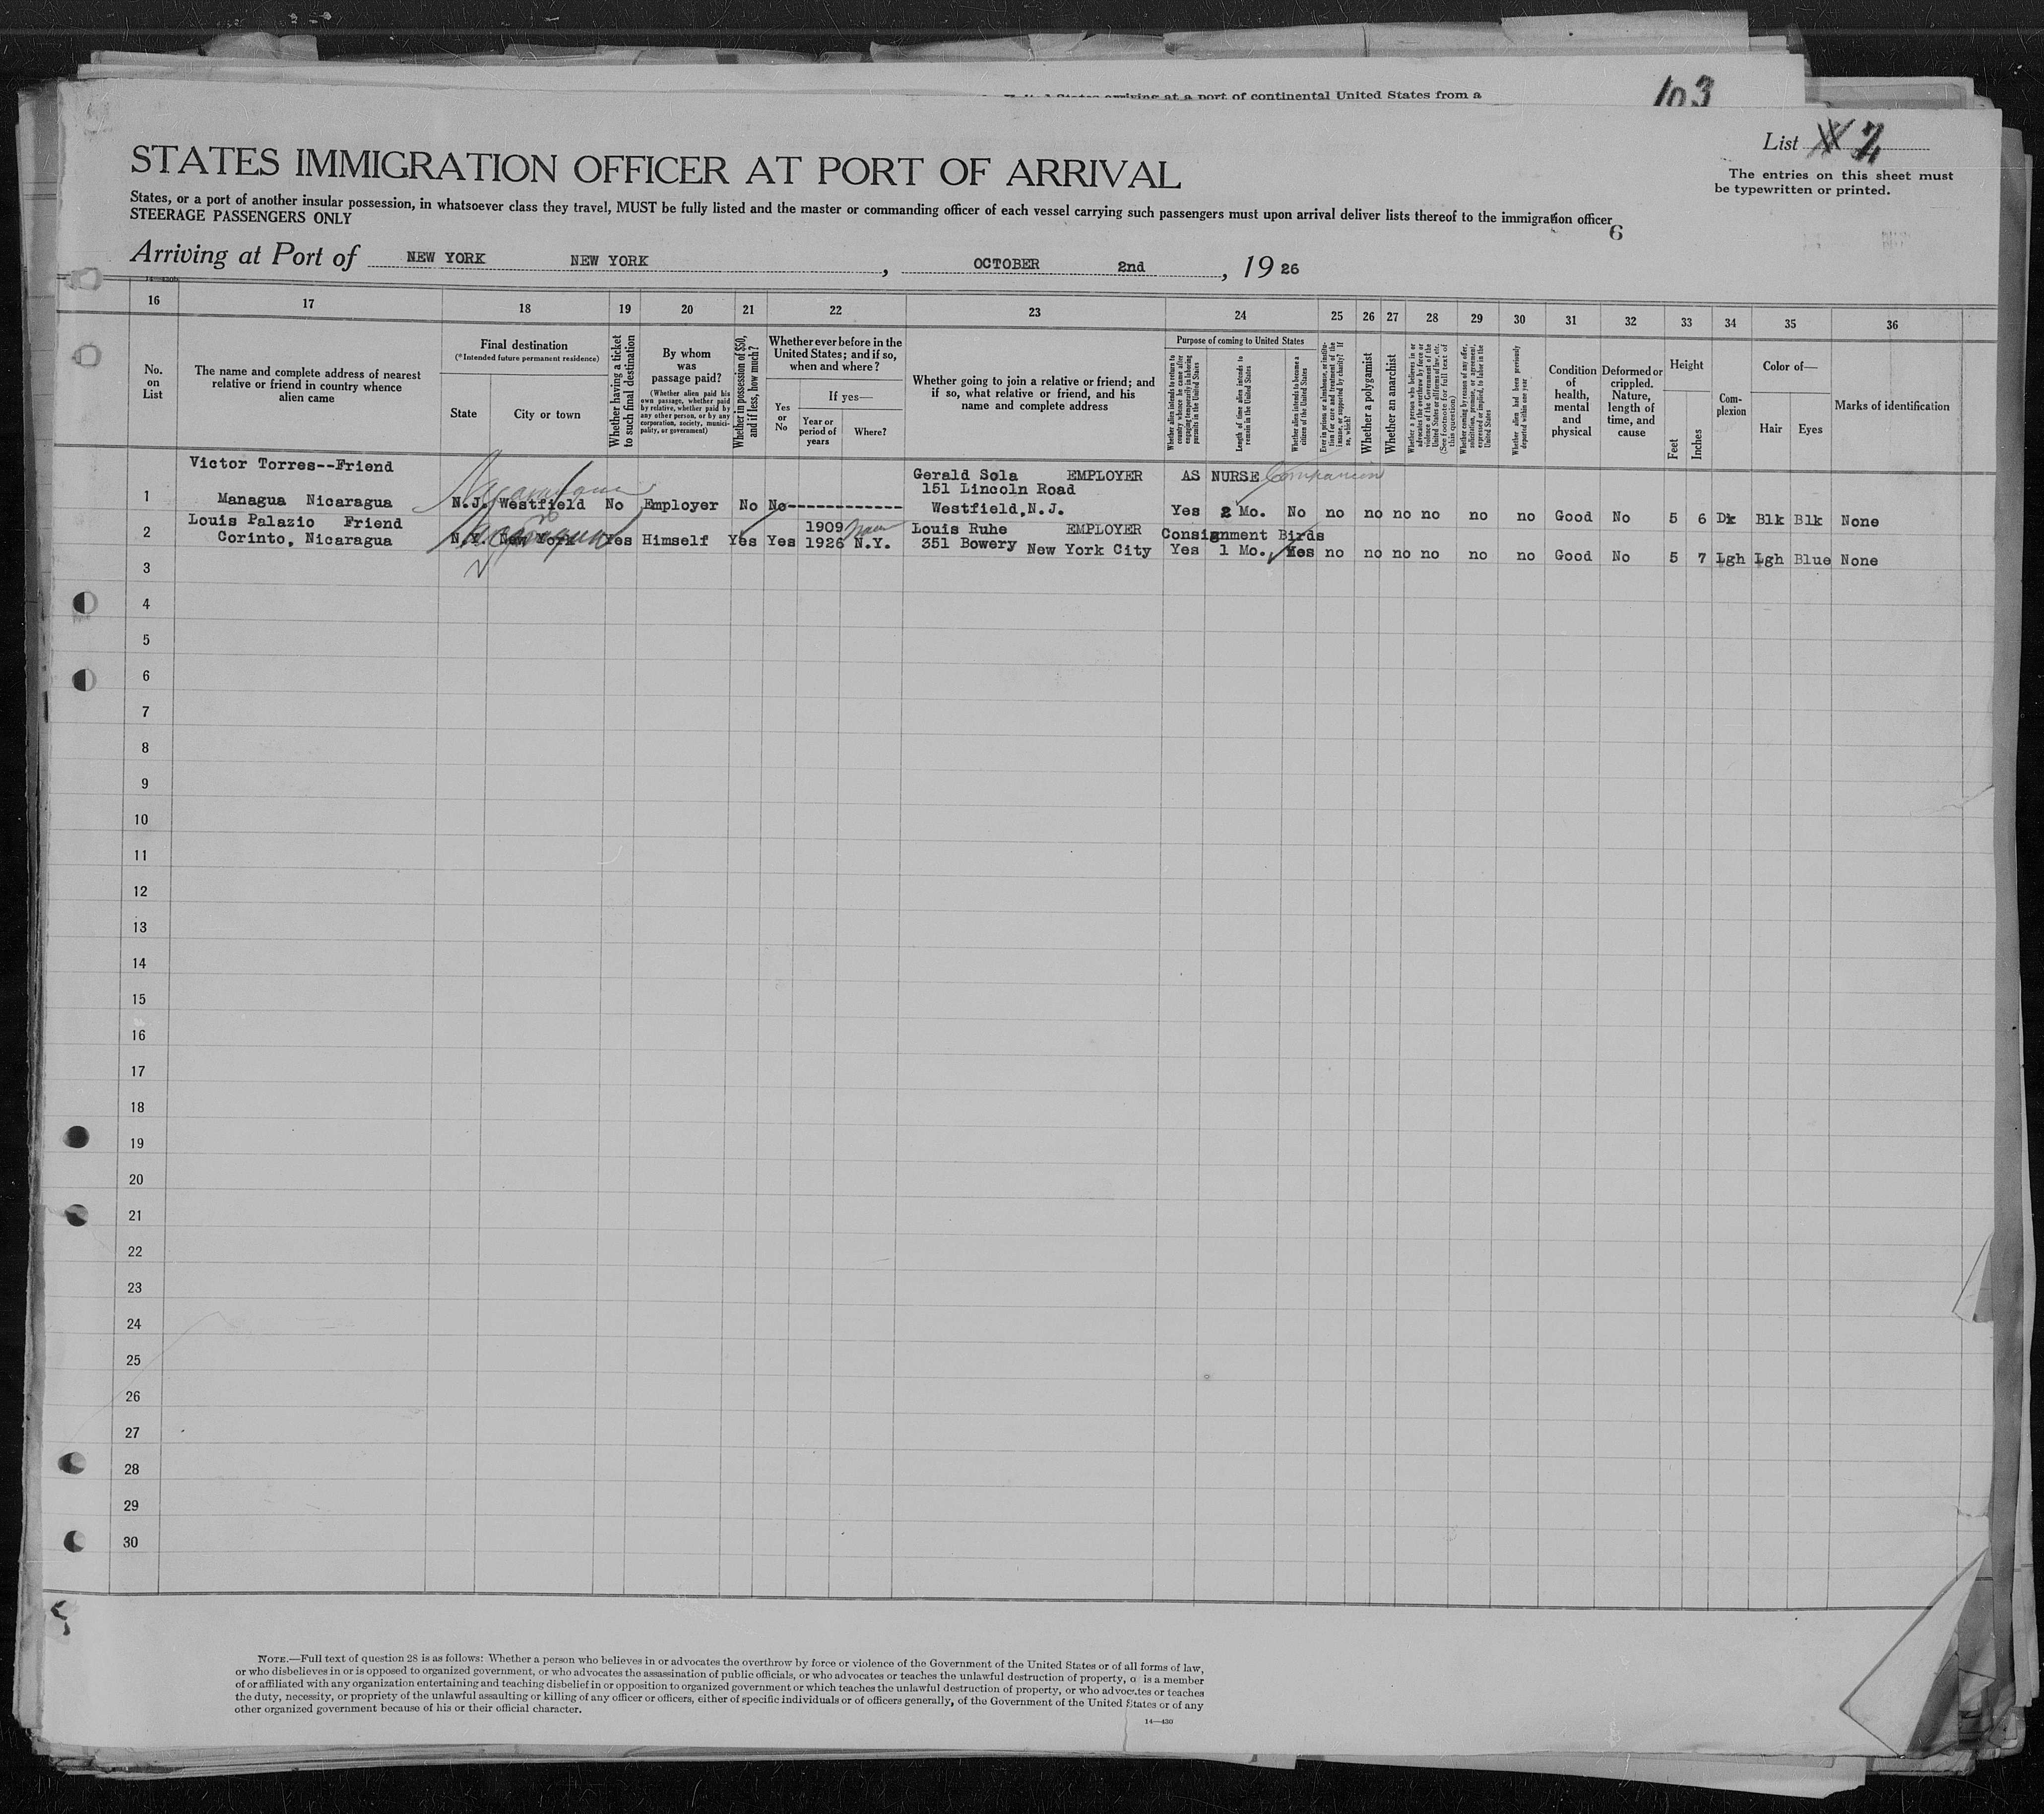 arriving at a port of continental United States from a
103
List 7
The entries on this sheet must
be typewritten or printed.
STATES IMMIGRATION OFFICER AT PORT OF ARRIVAL
States, or a port of another insular possession, in whatsoever class they travel, MUST be fully listed and the master or commanding officer of each vessel carrying such passengers must upon arrival deliver lists thereof to the immigration officer
STEERAGE PASSENGERS ONLY
6
Arriving at Port of NEW YORK NEW YORK, OCTOBER 2nd, 19 26
16 17 18 19 20 21 22 23 24 25 26 27 28 29 30 31 32 33 34 35 36
No. on List
The name and complete address of nearest relative or friend in country whence alien came
Final destination
(*Intended future permanent residence)
State
City or town
Whether having a ticket to such final destination
By whom was passage paid?
(Whether alien paid his own passage, whether paid by relative, whether paid by any other person, or by any corporation, society, municipality, or government)
Whether in possession of $50, and if less, how much?
Whether ever before in the United States; and if so, when and where?
Yes or No
If yes—
Year or period of years
Where?
Whether going to join a relative or friend; and if so, what relative or friend, and his name and complete address
Purpose of coming to United States
Whether alien intends to return to country whence he came after engaging temporarily in laboring pursuits in the United States
Length of time alien intends to remain in the United States
Whether alien intends to become a citizen of the United States
Ever in prison or almshouse, or institution for care and treatment of the insane, or supported by charity? If so, which?
Whether a polygamist
Whether an anarchist
Whether a person who believes in or advocates the overthrow by force or violence of the Government of the United States or all forms of law, etc. (See footnote for full text of this question)
Whether coming by reason of any offer, solicitation, promise, or agreement, expressed or implied, to labor in the United States
Whether alien had been previously deported within one year
Condition of health, mental and physical
Deformed or crippled. Nature, length of time, and cause
Height
Feet
Inches
Complexion
Color of—
Hair
Eyes
Marks of identification
Victor Torres--Friend Gerald Sola EMPLOYER AS NURSE Companion
Nicaragua 151 Lincoln Road
1 Managua Nicaragua N.J. Westfield No Employer No No------------ Westfield,N.J. Yes 2 Mo. No no no no no no no Good No 5 6 Dk Blk Blk None
2 Louis Palazio Friend 1909 Louis Ruhe EMPLOYER Consignment Birds
Corinto, Nicaragua N.Y. New York Nicaragua Yes Himself Yes Yes 1926 N.Y. 351 Bowery New York City Yes 1 Mo. Yes no no no no no no Good No 5 7 Lgh Lgh Blue None
3
4
5
6
7
8
9
10
11
12
13
14
15
16
17
18
19
20
21
22
23
24
25
26
27
28
29
30
NOTE.—Full text of question 28 is as follows: Whether a person who believes in or advocates the overthrow by force or violence of the Government of the United States or of all forms of law,
or who disbelieves in or is opposed to organized government, or who advocates the assassination of public officials, or who advocates or teaches the unlawful destruction of property, o is a member
of or affiliated with any organization entertaining and teaching disbelief in or opposition to organized government or which teaches the unlawful destruction of property, or who advocates or teaches
the duty, necessity, or propriety of the unlawful assaulting or killing of any officer or officers, either of specific individuals or of officers generally, of the Government of the United States or of any
other organized government because of his or their official character.
14—430